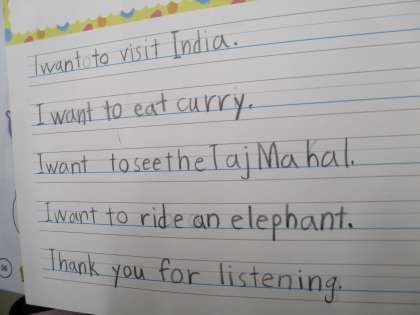 I want to visit India.
I want to eat curry.
I want to see the Taj Mahal.
I want to ride an elephant.
Thank you for listening.